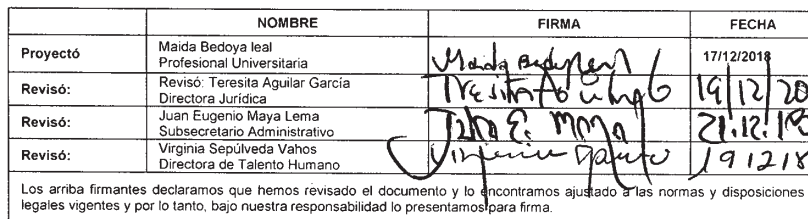 NOMBRE FIRMA FECHA
Proyectó Maida Bedoya leal
Profesional Universitaria Maida Bedoya leal 17/12/2018
Revisó: Revisó: Teresita Aguilar García
Directora Jurídica 19/12/20
Revisó: Juan Eugenio Maya Lema
Subsecretario Administrativo Juan E. Maya 21.12.18
Revisó: Virginia Sepúlveda Vahos
Directora de Talento Humano 191218
Los arriba firmantes declaramos que hemos revisado el documento y lo encontramos ajustado a las normas y disposiciones
legales vigentes y por lo tanto, bajo nuestra responsabilidad lo presentamos para firma.